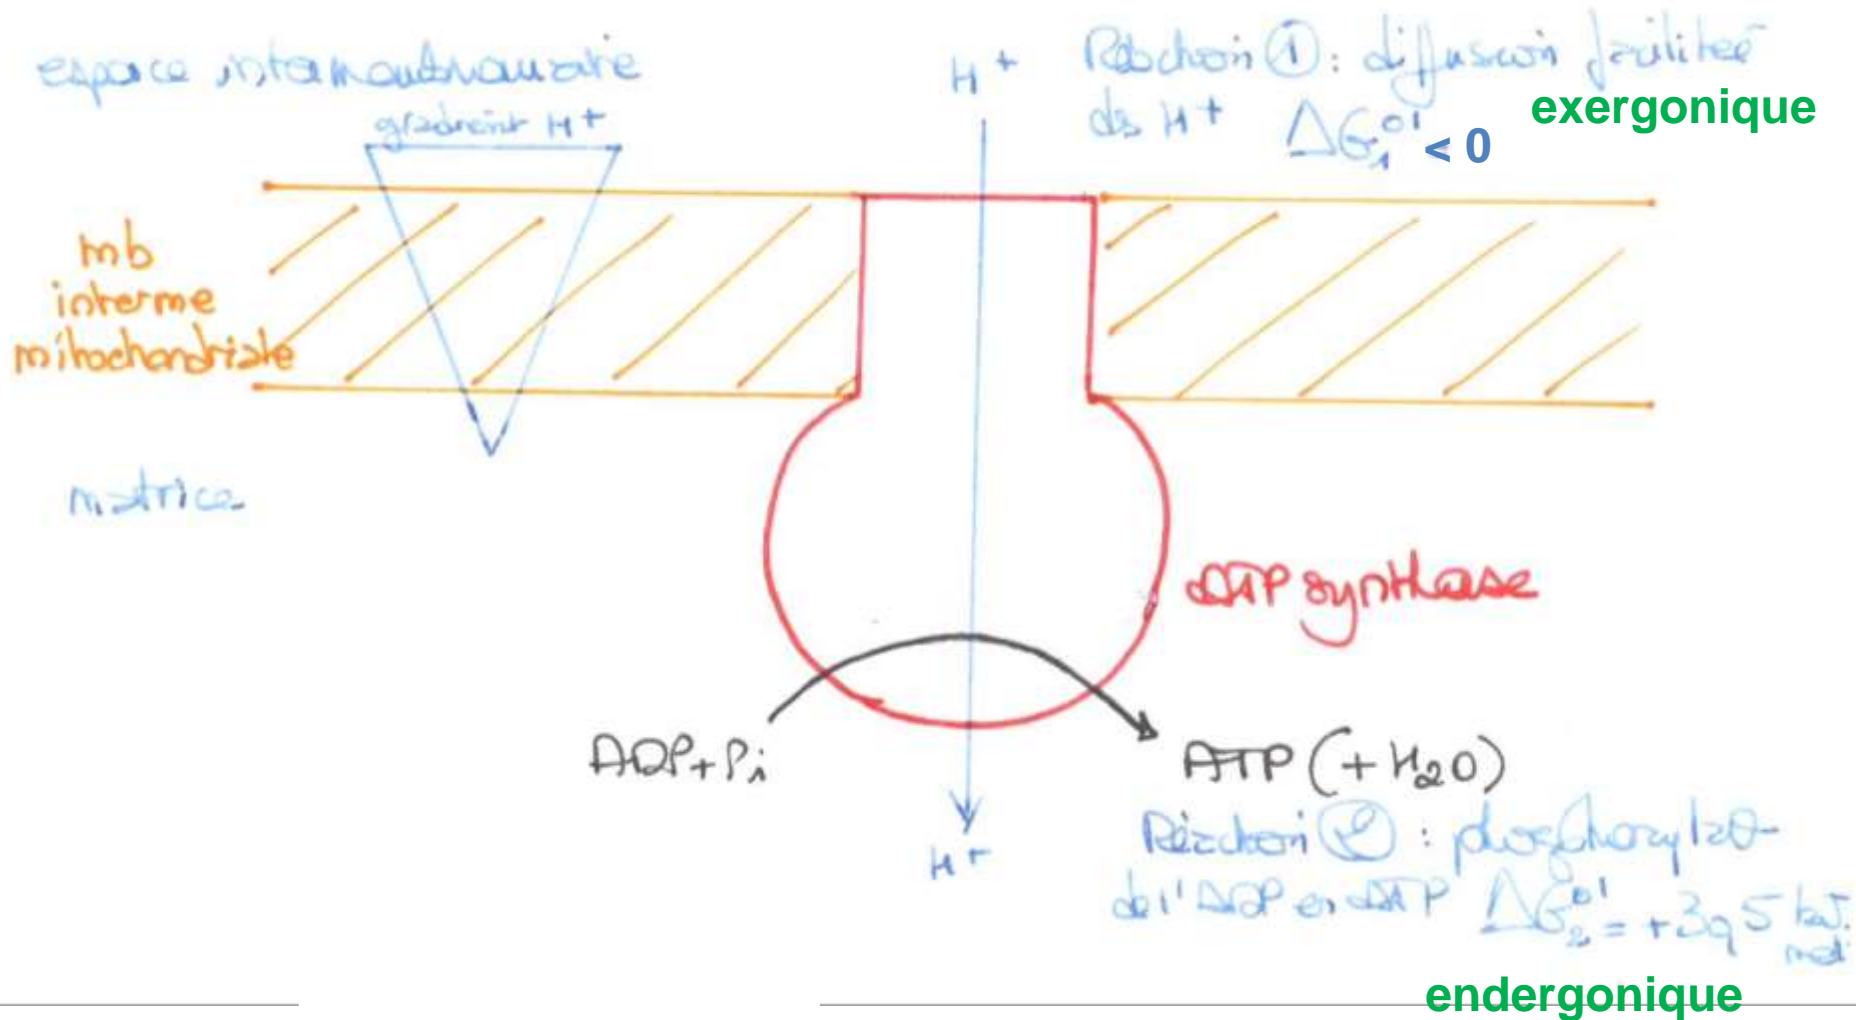 espace intermembranaire
gradient H+
H+
Réaction ① : diffusion facilitée
des H+ ΔG₁°' < 0
exergonique
mb
interne
mitochondriale
matrice
ATP synthase
ADP + Pi
ATP (+ H₂O)
H+
Réaction ② : phosphorylat°
de l'ADP en ATP ΔG₂°' = +30,5 kJ.
mol
endergonique